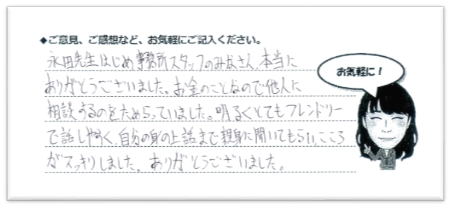 ◆ご意見、ご感想など、お気軽にご記入ください。
永田先生はじめ事務所スタッフのみなさん、本当に
ありがとうございました。お金のことなので他人に
相談するのをためらっていました。明るくとてもフレンドリー
で話しやすく、自分の身の上話まで親身に聞いてもらい、こころ
がスッキリしました。ありがとうございました。
お気軽に!